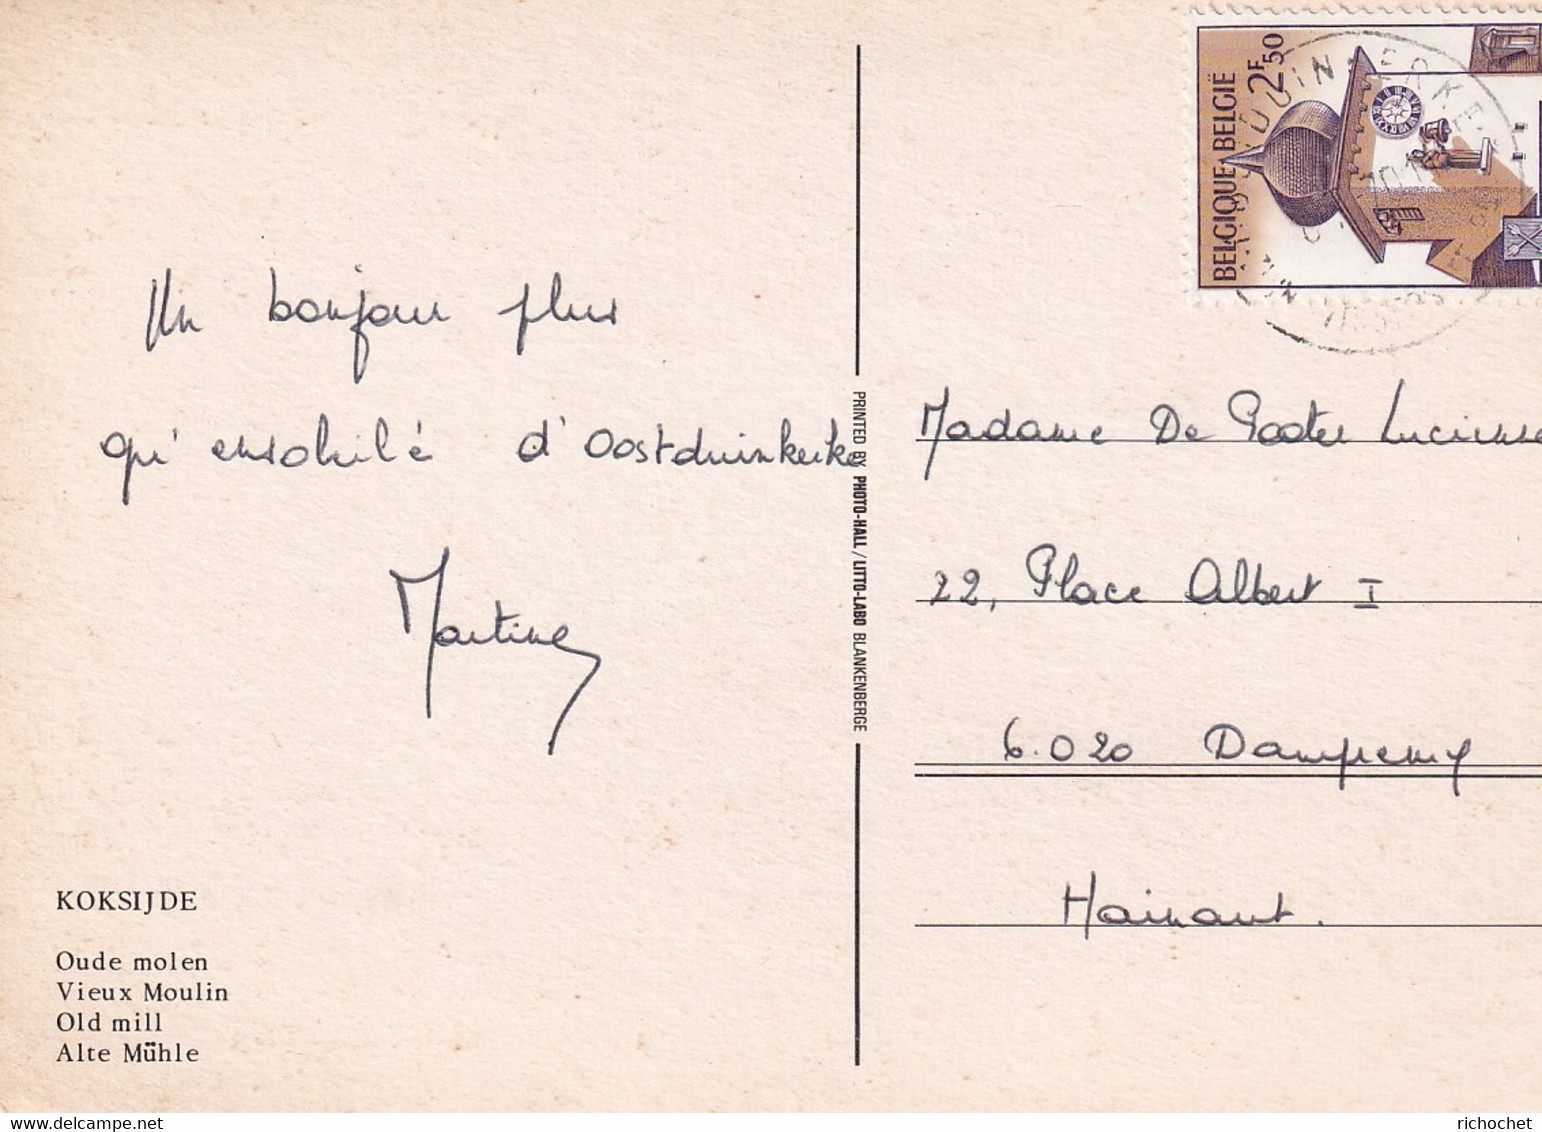 Un bonjour plus
qu'ensoleilé d'Oostduinkerke
Martine
KOKSIJDE
Oude molen
Vieux Moulin
Old mill
Alte Mühle
PRINTED BY PHOTO-HALL / LITTO-LABO BLANKENBERGE
BELGIQUE-BELGIË 2F50
Madame De Pooter Lucienne
22, Place Albert I
6.020 Dampremy
Hainaut.
www.delcampe.net
richochet